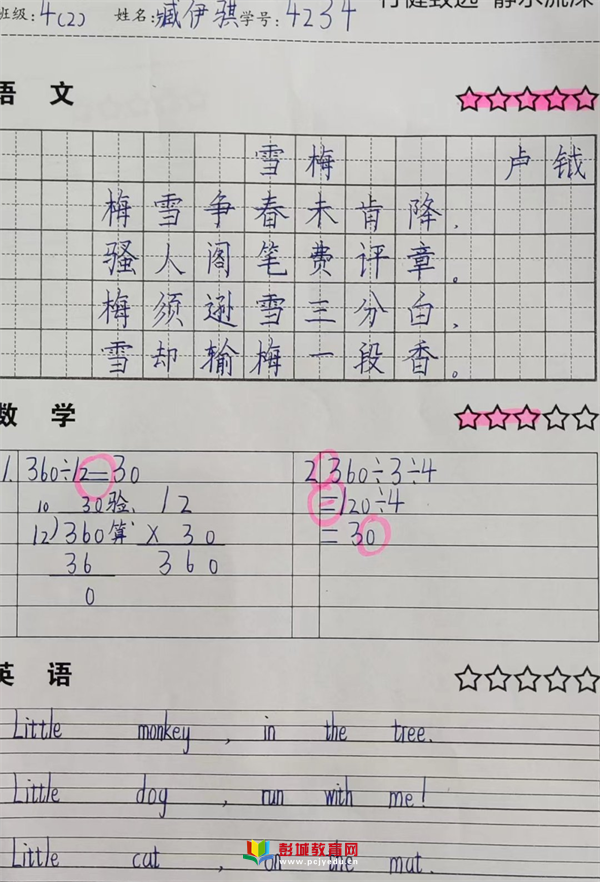 班级:4(2) 姓名:臧伊骐 学号:4234
语 文
雪梅 卢钺
梅雪争春未肯降,
骚人阁笔费评章。
梅须逊雪三分白,
雪却输梅一段香。
数 学
1. 360÷12=30
10 30 验 12
12)360 算 × 30
36 360
0
2 360÷3÷4
=120÷4
=30
英 语
Little monkey, in the tree.
Little dog, run with me!
Little cat, on the mat.
彭城教育网
www.pcjyedu.cn